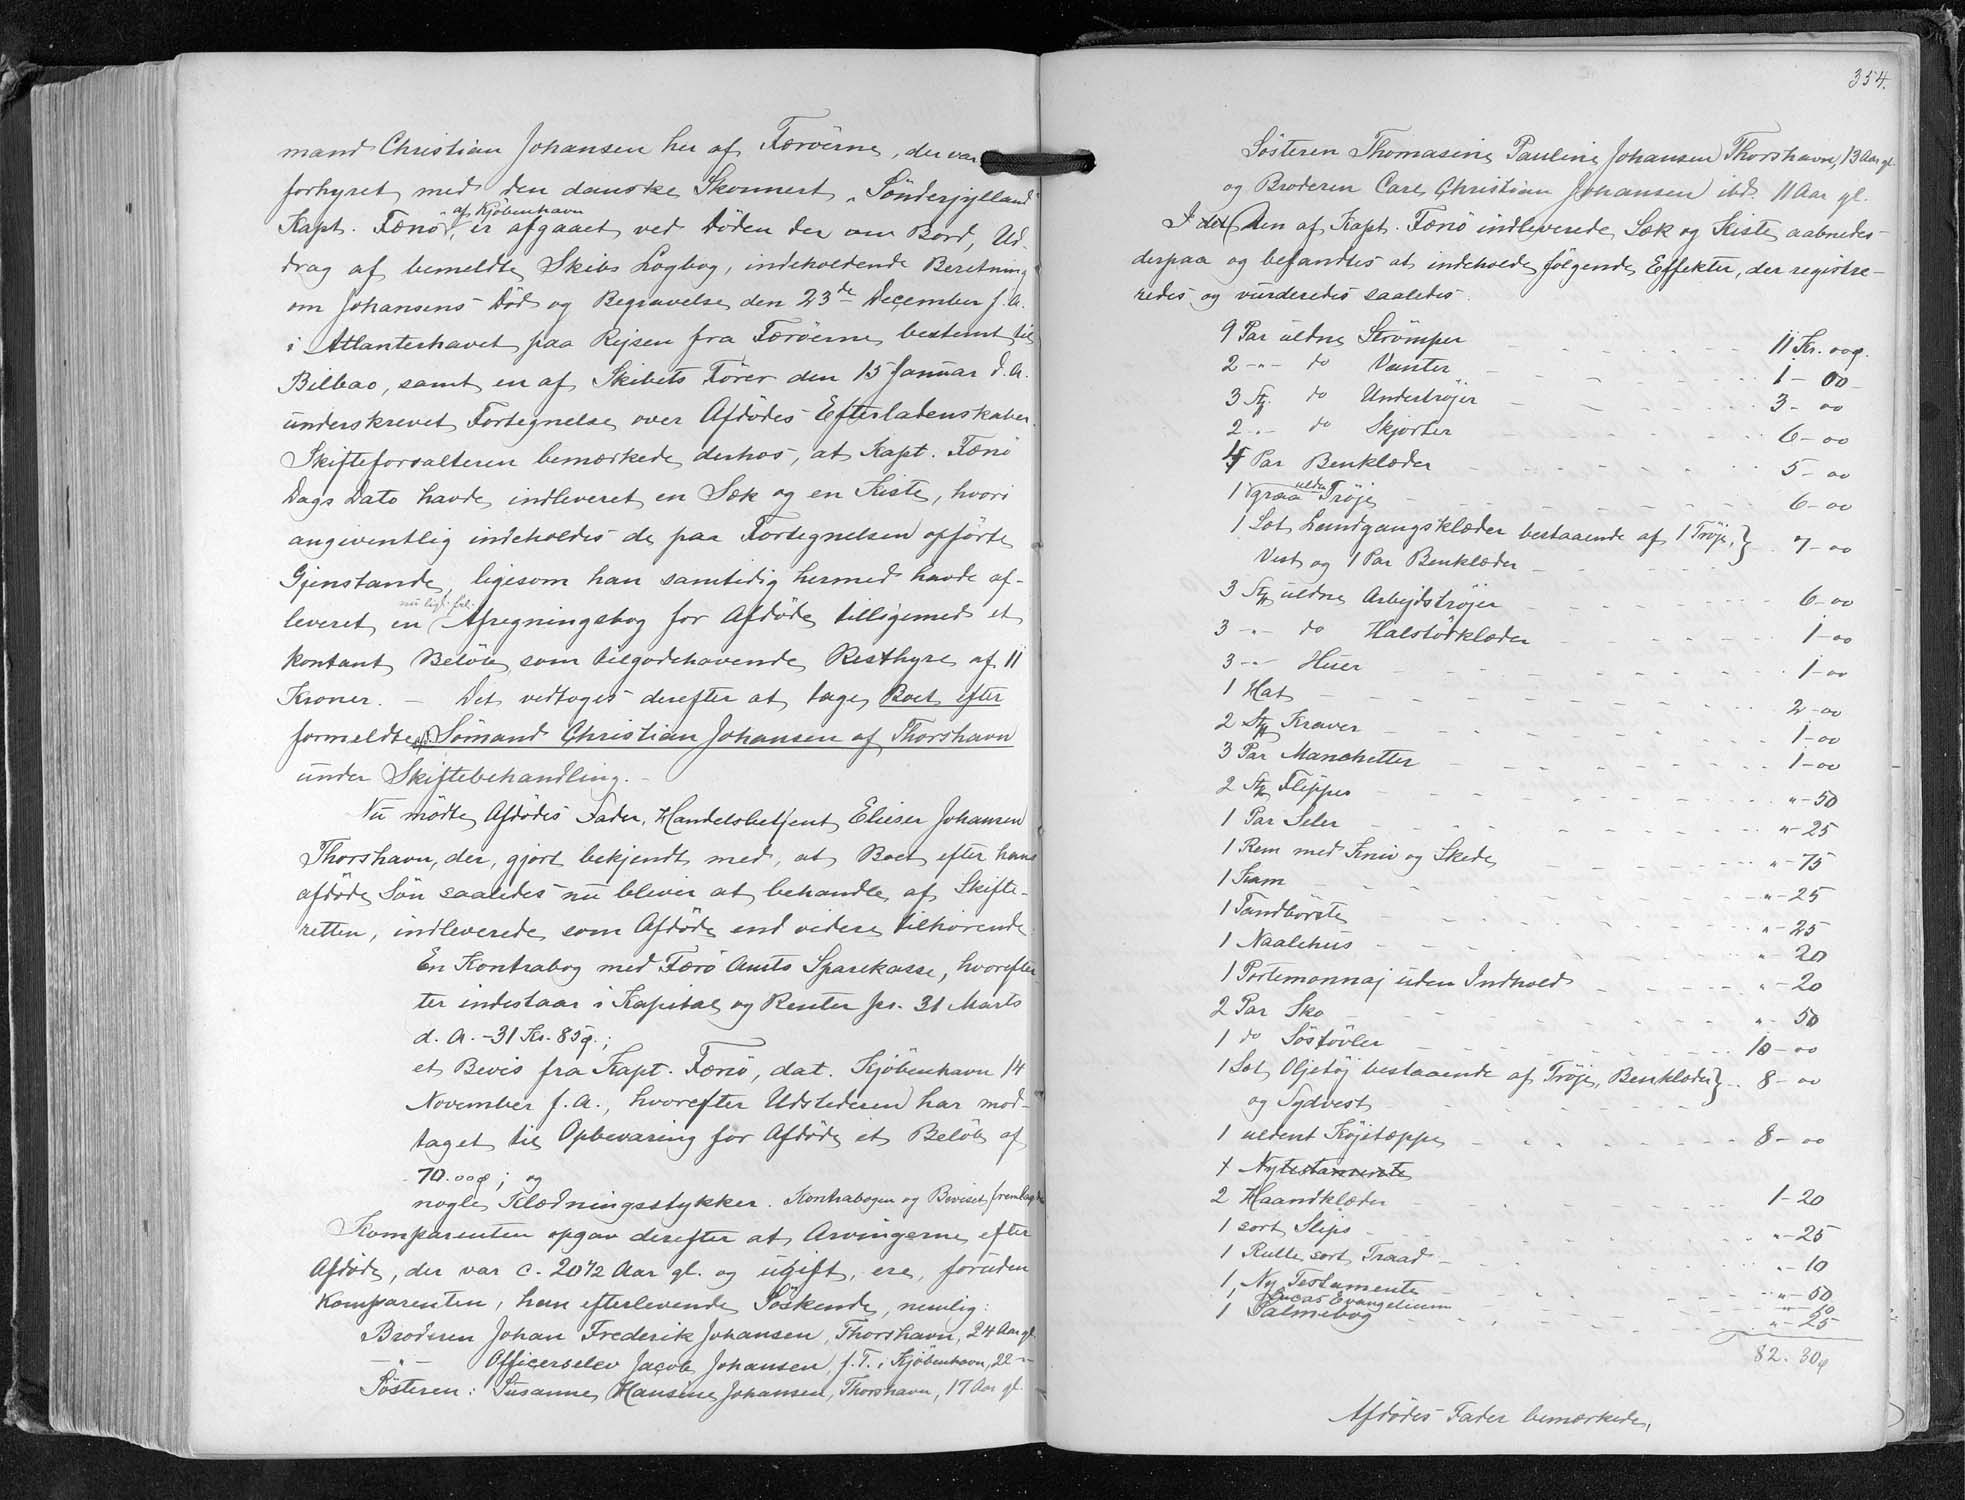 mand Christian Johansen her af Færöerne, der var
forhyret med den danske Skonnert "Sönderjylland"
Kapt. Fænö, af Kjöbenhavn er afgaaet ved Döden der om Bord, Ud-
drag af bemeldte Skibs Logbog, indeholdende Beretning
om Johansens Död og Begravelse den 23de December f. A.
i Atlanterhavet paa Rejsen fra Færöerne bestemt til
Bilbao, samt en af Skibets Förer den 15 Januar d. A.
underskrevet Fortegnelse over Afdödes Efterladenskaber.
Skifteforvalteren bemærkede derhos, at Kapt. Fænö
Dags Dato havde indleveret en Sæk og en Kiste, hvori
angiventlig indeholdes de paa Fortegnelsen opförte
Gjenstande, ligesom han samtidig hermed havde af-
leveret en Afregningsbog for Afdöde tilligemed et
kontant Belöb som tilgodehavende Resthyre af 11
Kroner. — Det vedtoges derefter at tage Boet efter
formeldte Sömand Christian Johansen af Thorshavn
under Skiftebehandling. —
Nu mödte Afdödes Fader, Handelsbetjent Elieser Johansen
Thorshavn, der, gjort bekjendt med, at Boet efter hans
afdöde Sön saaledes nu bliver at behandle af Skifte-
retten, indleverede som Afdöde end videre tilhörende
En Kontrabog med Færö Amts Sparekasse, hvorefter
ter indestaar i Kapital og Renter pr. 31 Marts
d. A. - 31 Kr. 85 ø.;
et Bevis fra Kapt. Fænö, dat. Kjöbenhavn 14
November f. A., hvorefter Udstederen har mod-
taget til Opbevaring for Afdöde et Belöb af
70.00 ø; og
nogle Klædningsstykker. Kontrabogen og Beviset fremlagdes
Komparenten opgav derefter at Arvingerne efter
Afdöde, der var c. 20½ Aar gl. og ugift, ere, foruden
Komparenten, hans efterlevende Söskende, nemlig:
Broderen Johan Frederik Johansen, Thorshavn, 24 Aar gl.
— " — Officerselev Jacob Johansen, f. T. i Kjöbenhavn, 22 - "
Sösteren: Susanne Hansine Johansen, Thorshavn, 17 Aar gl.
354.
Sösteren Thomasine Pauline Johansen Thorshavn, 13 Aar gl.
og Broderen Carl Christian Johansen ibd. 11 Aar gl.
Den af Kapt. Fænö indleverede Sæk og Kiste aabnedes
derpaa og befandtes at indeholde fölgende Effekter, der registre-
redes og vurderedes saaledes.
9 Par uldne Strömper 11 Kr. 00 ø.
2 - " - do Vanter 1 - 00
3 Stk. do Undertröjer 3 - 00
2 - " - do Skjorter 6 - 00
4 Par Benklæder 5 - 00
1 graa ulden Tröje 6 - 00
1 Sæt Landgangsklæder bestaaende af 1 Tröje, } 7 - 00
Vest og 1 Par Benklæder
3 Stk uldne Arbejdströjer 6 - 00
3 - " - do Halstörklæder 1 - 00
3 - " - Huer 1 - 00
1 Hat 2 - 00
2 Stk Kraver 1 - 00
3 Par Manchetter 1 - 00
2 Stk Flipper " - 50
1 Par Seler " - 25
1 Rem med Kniv og Skede " - 75
1 Kam " - 25
1 Tandbörste " - 25
1 Naalehus " - 20
1 Portemonnaj uden Indhold " - 20
2 Par Sko " - 50
1 do Söstövler 10 - 00
1 Sæt Oljetöj bestaaende af Tröje, Benklæder } 8 - 00
og Sydvest
1 uldent Köjetæppe 8 - 00
1 Nytestamente
2 Haandklæder 1 - 20
1 sort Slips " - 25
1 Rulle sort Traad " - 10
1 Ny Testamente " - 50
1 Lucas Evangelium
1 Salmebog " - 25
82. 30 ø
Afdödes Fader bemærkede,